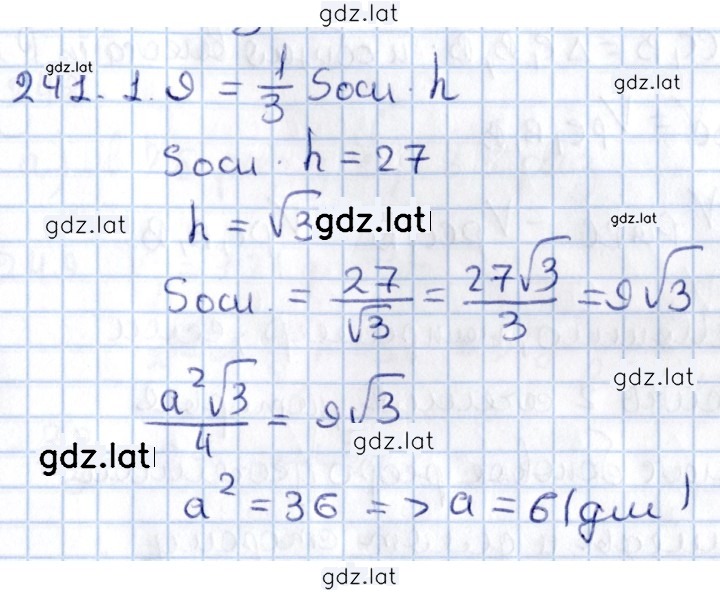 gdz.lat
gdz.lat
241. 1. 9 = 1/3 Sосн · h
gdz.lat
Sосн · h = 27
gdz.lat
h = √3
gdz.lat
gdz.lat
Sосн. = 27/√3 = 27√3/3 = 9√3
gdz.lat
a²√3/4 = 9√3
gdz.lat
gdz.lat
a² = 36 => a = 6 (дм)
gdz.lat